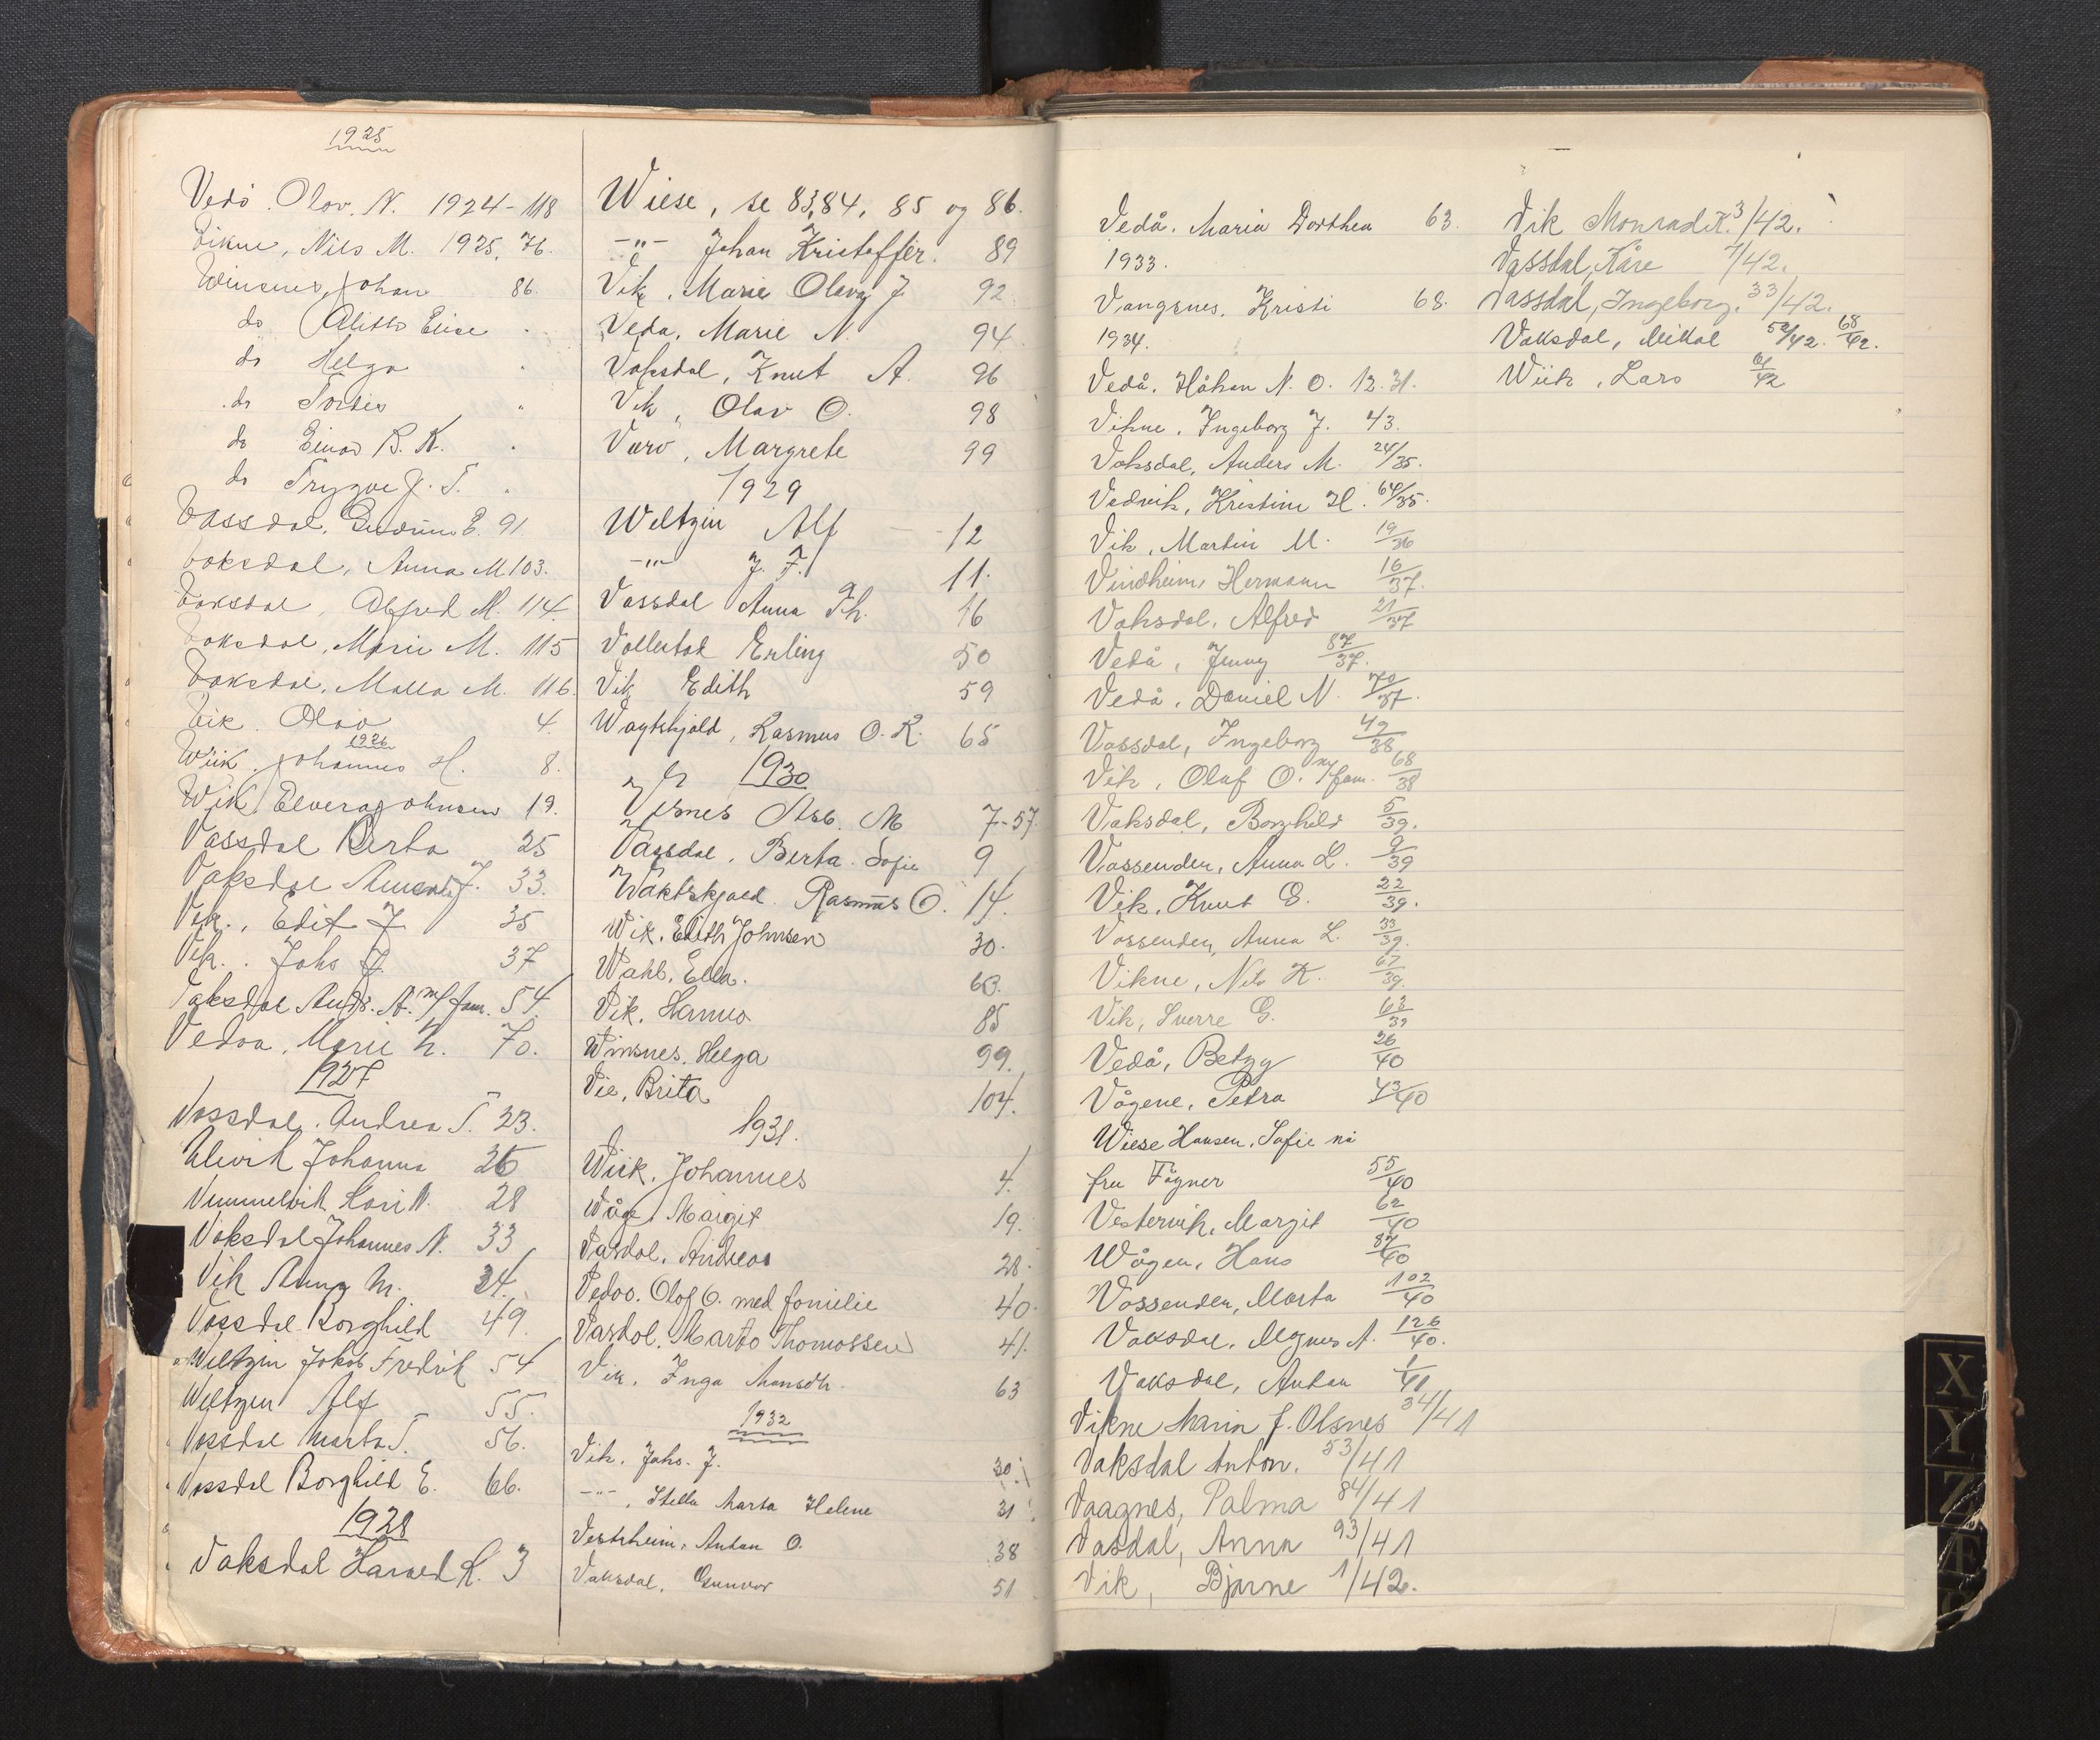 1925
Vedö. Olav. N. 1924-118
Vikne, Nils M. 1925, 76.
Winsnes, Johan 86.
do Alitto Elise
do Helga
do Tordis
do Einar B. K.
do Trygve J. T.
Vassdal, Gudrun E. 91
Voksdal, Anna M 103.
Voksdal, Alfred M. 114
Voksdal, Marie M. 115
Voksdal, Malla M. 116.
Vik. Olav 4.
1926
Wiik. Johannes H. 8.
Wik Elvera Johnsen 19.
Vassdal Berta 25
Vaksdal J. 33.
Vik., Edit J 35
Vik. . Johs J. 37
Vaksdal Andr. A. m/fam. 54.
Vedaa, Marie N. 70.
1927
Vassdal. Andrea T. 23.
Ulevik Johanna 26
Vimmelvik Kari N. 28
Voksdal Johannes N. 33
Vik Anna M. 34.
Vassdal Borghild 49.
Weltzin Jakob Fredrik 54
Weltzin Alf 55.
Vassdal Marta T. 56.
Vassdal Borghild E. 66.
1928
Vaksdal Harald K. 3
Wiese, se 83,84, 85 og 86.
-"- Johan Kristoffer. 89
Vik, Marie Olava J. 92
Veda, Marie N. 94
Vaksdal, Knut A. 96
Vik, Olav O. 98
Varö, Margrete 99
1929
Weltzin Alf 12
-"- J. F. 11.
Vassdal Anna Th. 16
Vallestad Erling 50
Vik Edith 59
Wagtskjold, Rasmus O. R. 65
1930
Vesnes Asb. M 7-57
Vassdal, Berta Sofie 9
Waktskjold. Rasmus O. 14.
Wik. Edith Johnsen 30.
Wahl, Ella. 63.
Vik, Hanna 85
Winsnes. Helga 99.
Vie, Brita 104.
1931.
Wiik, Johannes 4.
Våge, Margit 19.
Vasdal. Andreas 28.
Vedaa. Olaf O. med familie 40.
Vasdal, Marta Thomassen 41.
Vik, Inga Mansdtr. 63
1932
Vik. Johs. J. 30.
-"-, Stella Marta Helene 31
Vestrheim, Anton O. 38
Vaksdal, Gunvor 51
Vedå. Maria Dorthea 63.
1933.
Vangsnes. Kristi 68.
1934.
Vedå. Håkon N. O. 12. 31.
Vikne. Ingeborg J. 43.
Voksdal, Anders M. 24/35.
Vedvik, Kristine H. 64/35.
Vik, Martin M. 19/36
Vindheim, Hermann 16/37.
Vaksdal, Alfred 21/37
Vedå, Jenny 87/37.
Vedå, Daniel N. 70/37.
Vassdal, Ingeborg 49/38
Vik, Olaf O. m/fam. 68/38
Vaksdal, Borghild 5/39.
Vassenden, Anna L. 9/39
Vik, Knut G. 22/39.
Vossenden, Anna L. 33/39.
Vikne, Nils K. 67/39.
Vik, Sverre G. 63/39
Vedå, Betzy 26/40
Vågene, Petra 43/40
Wiese Hansen, Sofie nå
fru Fågner 55/40
Vestervik, Margit 62/40
Wågen, Hans 87/40
Vossenden, Marta 102/40
Voksdal, Magnus A. 126/40.
Vaksdal, Anton 1/41
Vikne Marin f. Olsnes 34/41
Vaksdal Anton. 53/41
Vaagnes, Palma 84/41
Vasdal, Anna 93/41
Vik, Bjarne 1/42.
Vik Monrad K. 3/42.
Vassdal, Kåre 7/42.
Vassdal, Ingeborg. 33/42.
Vaksdal, Mikal 52/42. 68/42.
Wiik, Lars 61/42
X
Y
Z
Æ